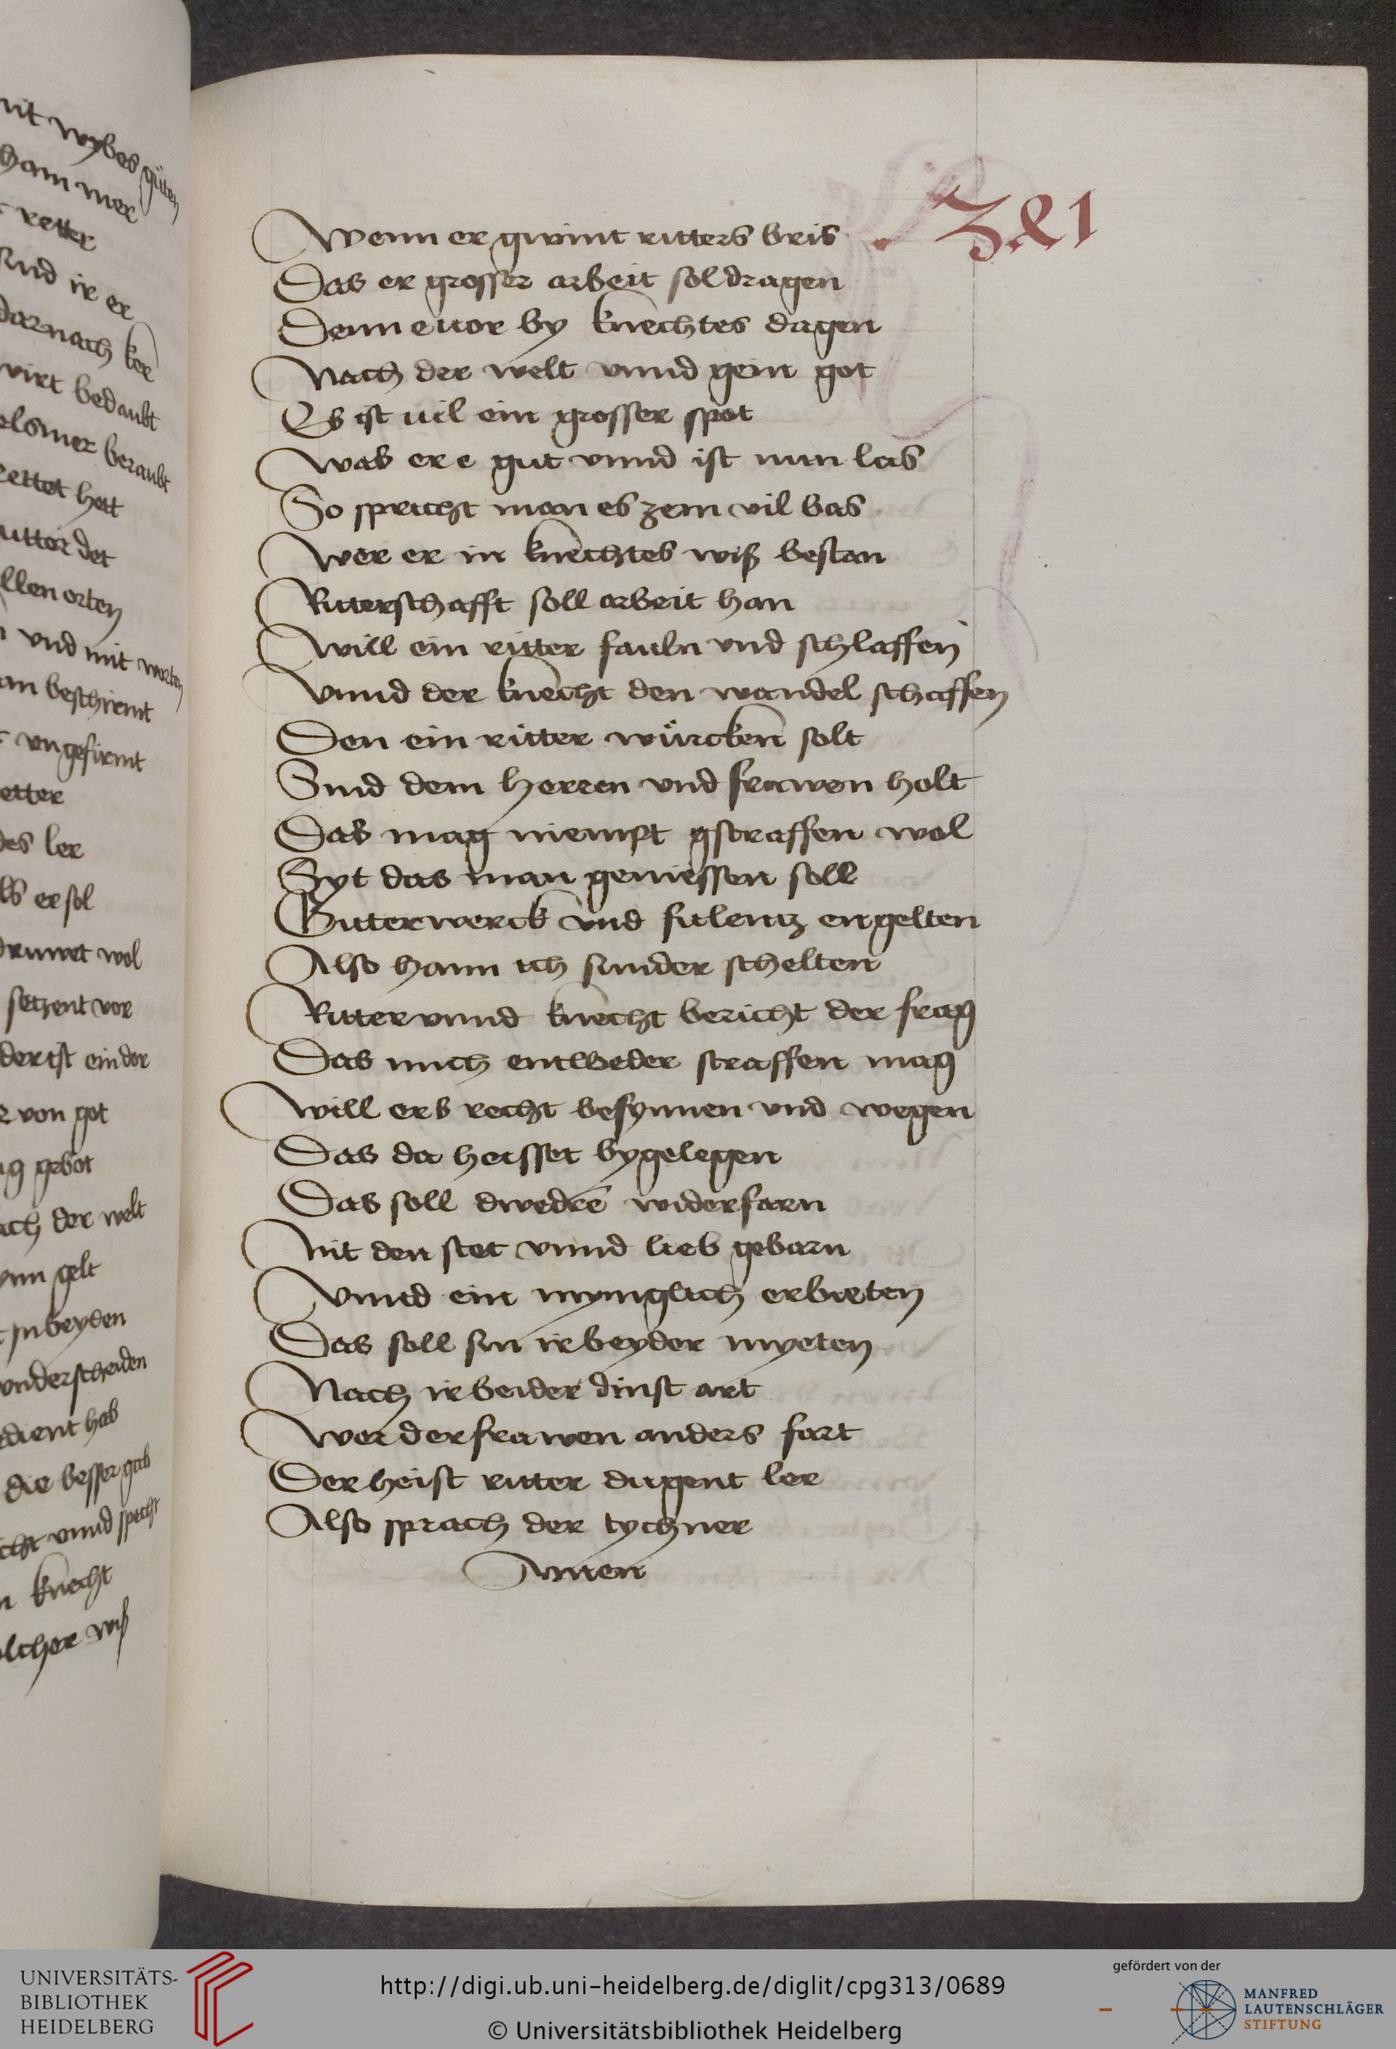 nit wybes güten
ham mer
retter
sind ir er
darnach ker
wirt bedaubt
beraubt
rettet hett
mutter det
allen orten
vnd mit worten
an beschirmt
vngefirmt
retter
des ler
als er sol
druwet wol
setzent vor
der ist ein dor
von got
gebot
nach der welt
gelt
in beyden
vnderscheiden
dient hab
die besser gab
vnnd specht
knecht
solcher wiß
341
Wenn er gwint ritters bris
Das er grosser arbeit sol dragen
Denn e uor by knechtes dagen
Nach der welt vnnd gein got
Es ist uil ein grosser spot
Was er e gut vnnd ist nun las
So spricht man es zem vil bas
Wer er in knechtes wiß bestan
Ritterschafft soll arbeit han
Will ein ritter fauln vnd schlaffen
Vnnd der knecht den wandel schaffen
Den ein ritter würcken solt
Sind dem herren vnd frawen holt
Das mag niempt gstraffen wol
Syt das man geniessen soll
Gutter werck vnd fulentz engelten
Also hann ich sunder schelten
Ritter vnnd knecht bericht der frag
Das mich entweder straffen mag
Will ers recht besynnen vnd wegen
Das da heisset bygelegen
Das soll dwedre widerfarn
Mit den stet vnnd lieb gebarn
Vnnd ein mynniglich erbieten
Das soll sin ir beyder myeten
Nach ir beider dinst art
Wer der frawen anders fart
Der heist ritter dugent ler
Also sprach der tychner
Amen
UNIVERSITÄTS-
BIBLIOTHEK
HEIDELBERG
http://digi.ub.uni-heidelberg.de/diglit/cpg313/0689
© Universitätsbibliothek Heidelberg
gefördert von der
MANFRED
LAUTENSCHLÄGER
STIFTUNG